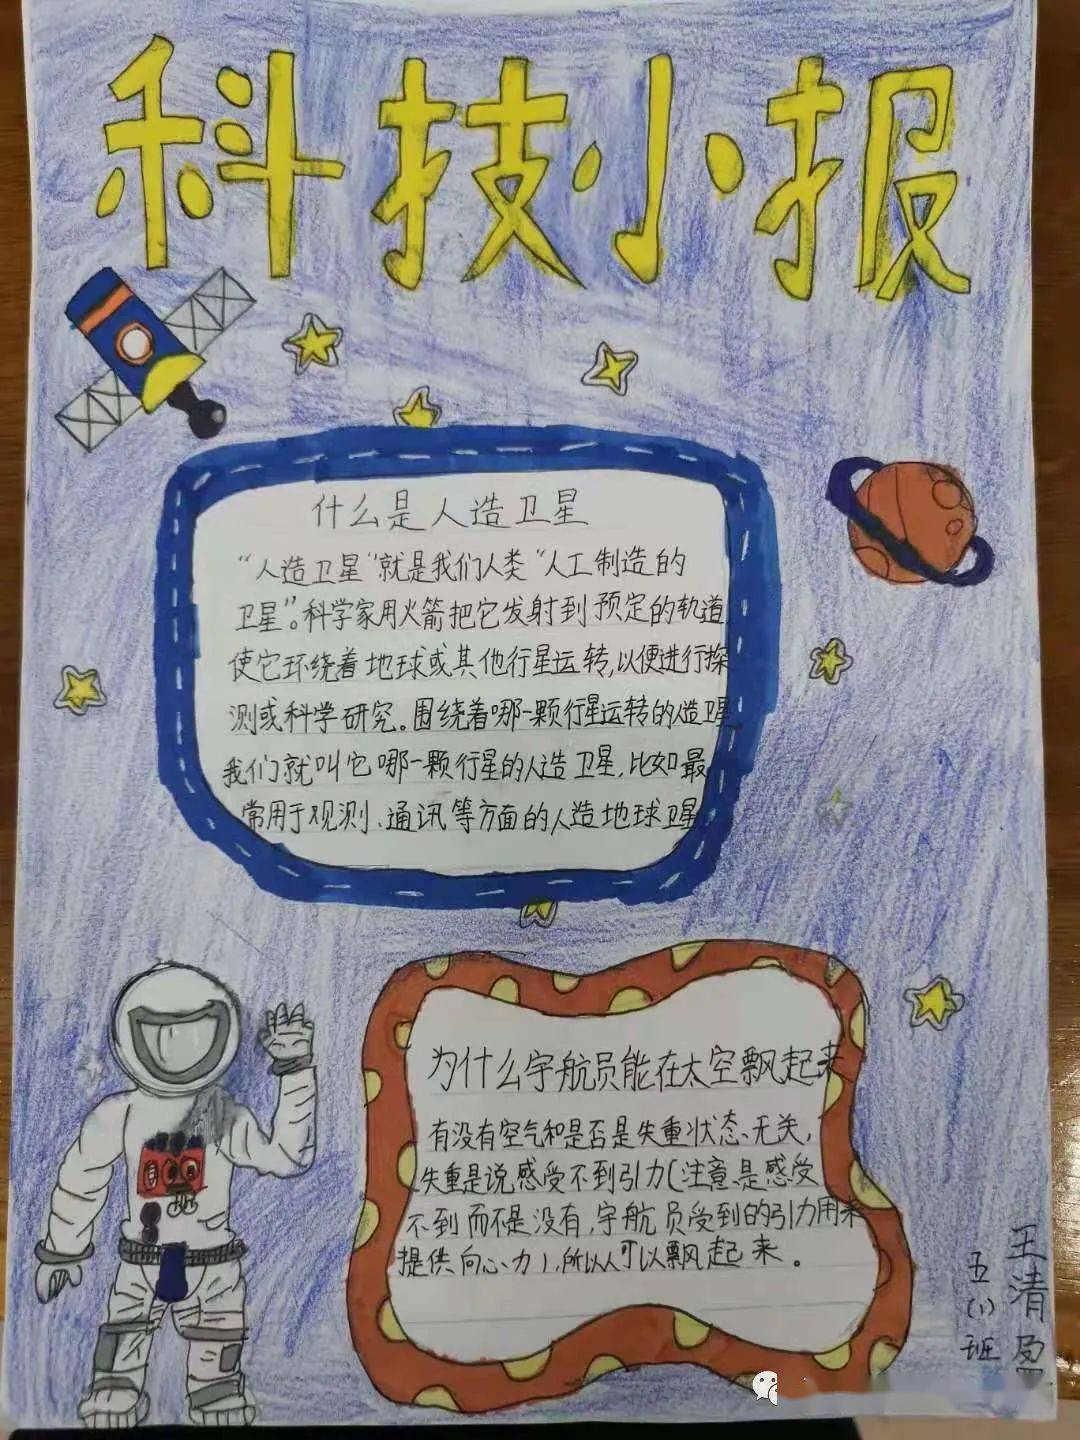 科技小报
什么是人造卫星
“人造卫星”就是我们人类“人工制造的
卫星”。科学家用火箭把它发射到预定的轨道,
使它环绕着地球或其他行星运转,以便进行探
测或科学研究。围绕着哪一颗行星运转的人造卫星,
我们就叫它哪一颗行星的人造卫星,比如最
常用于观测、通讯等方面的人造地球卫星
为什么宇航员能在太空飘起来
有没有空气和是否是失重状态、无关,
失重是说感受不到引力(注意、是感受
不到而不是没有,宇航员受到的引力用来
提供向心力),所以人可以飘起来。
五(1)班
王清盈